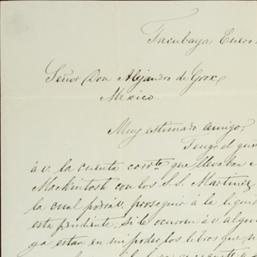 Tacubaya Enero
Señor Don Alejandro de Grox,
Mexico.
Muy estimado amigo,
Tengo el gus
á v. la cuenta corrte que llevaban
Mackintosh con los S.S. Martinez
la cual podrá v. proseguir a la liquid
esta pendiente, si le ocurren á v. algun
ya estan en mi poder los libros que